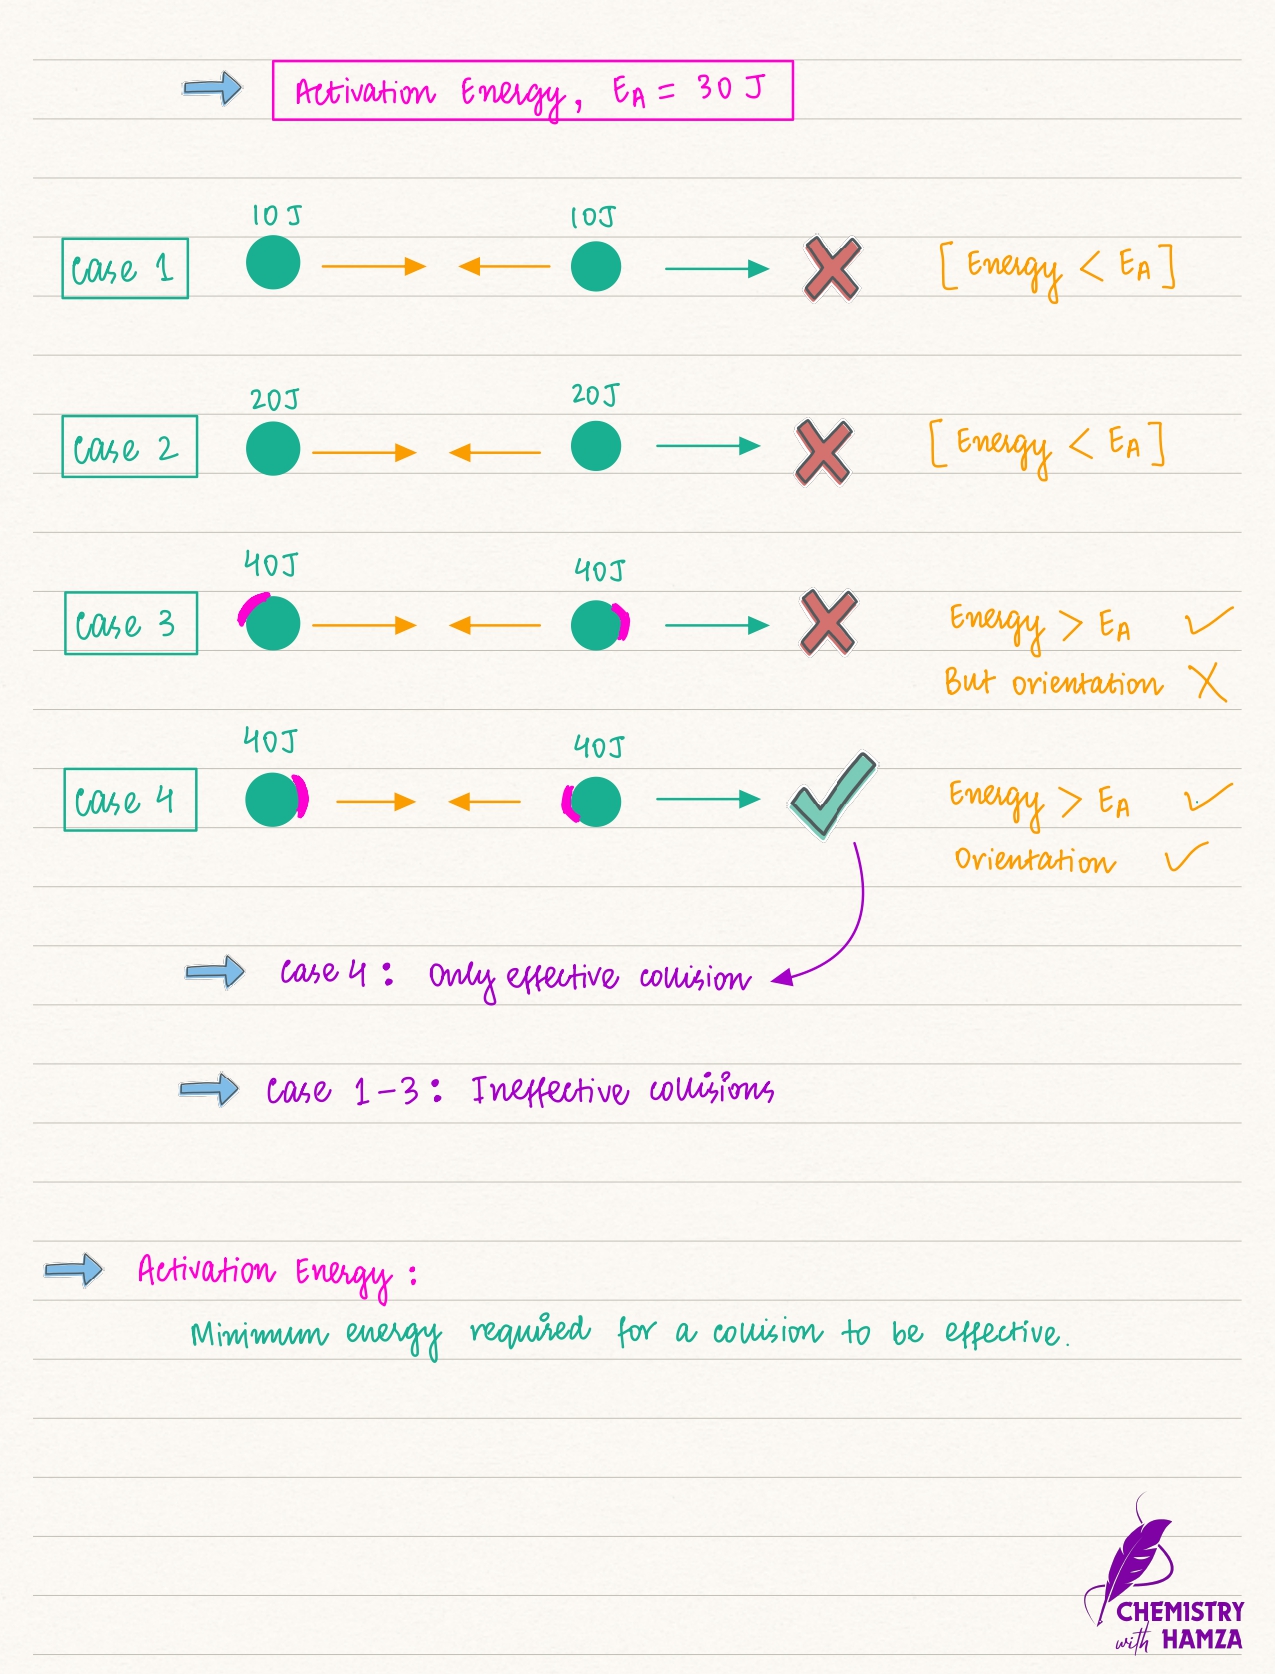 Activation Energy, EA = 30 J
10 J 10J
Case 1 [Energy < EA]
20J 20J
Case 2 [Energy < EA]
40J 40J
Case 3 Energy > EA ✓
But orientation X
40J 40J
Case 4 Energy > EA ✓
Orientation ✓
Case 4: Only effective collision
Case 1-3: Ineffective collisions
Activation Energy:
Minimum energy required for a collision to be effective.
CHEMISTRY
with HAMZA